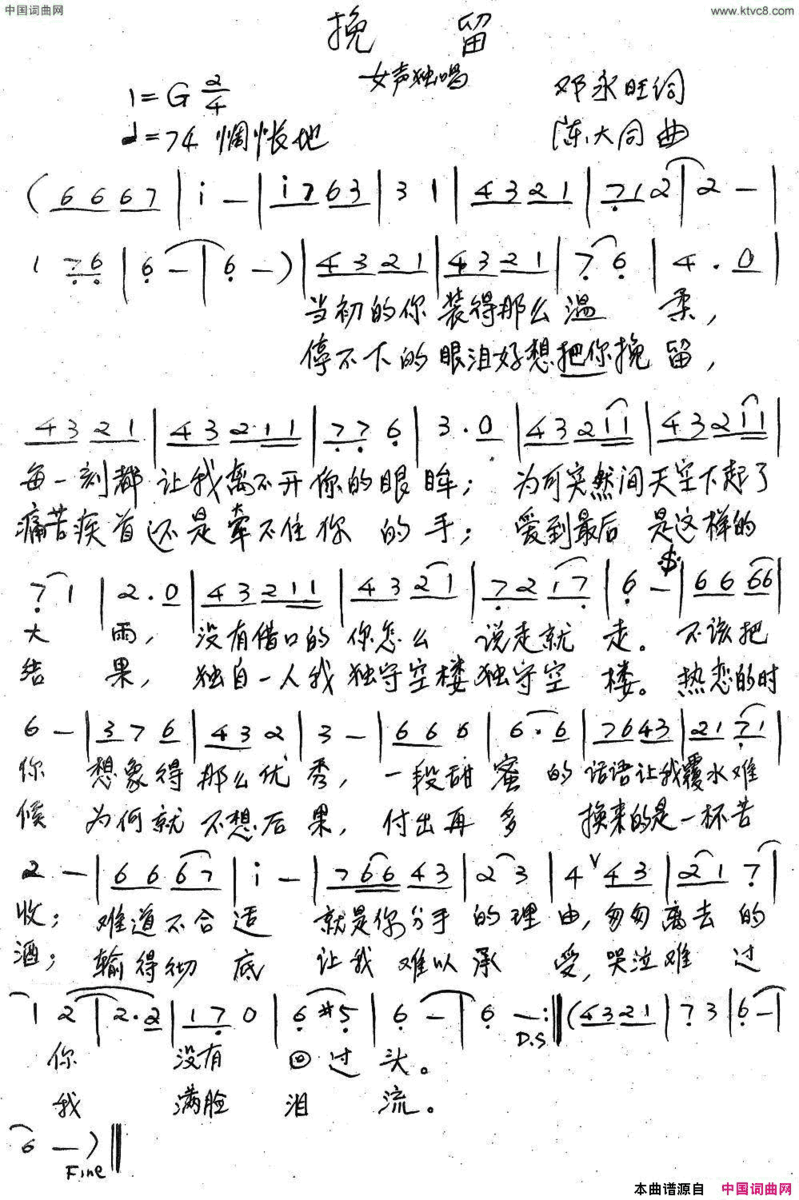 中国词曲网
www.ktvc8.com
挽 留
女声独唱
1=G 2/4
邓永旺词
♩=74 惆怅地
陈大同曲
(6 6 6 7 | i — | i 7 6 3 | 3 1 | 4 3 2 1 | 7 1 2 | 2 — |
1 7 6 | 6 — | 6 —) | 4 3 2 1 | 4 3 2 1 | 7 6 | 4 . 0 |
当初的你 装得那么 温 柔，
停不下的 眼泪好想 把你挽 留，
4 3 2 1 | 4 3 2 1 1 | 7 7 6 | 3 . 0 | 4 3 2 1 1 | 4 3 2 1 1 |
每一刻都 让我离不开 你的眼 眸； 为何突然间 天空下起了
痛苦疾首 还是牵不住 你 的 手； 爱到最后 是这样的
7 1 | 2 . 0 | 4 3 2 1 1 | 4 3 2 1 | 7 2 1 7 | 6 — | 6 6 6 6 |
大 雨， 没有借口的 你怎么 说走就 走。 不该把
结 果， 独自一人我 独守空楼 独守空 楼。 热恋的时
6 — | 3 7 6 | 4 3 2 | 3 — | 6 6 6 | 6 . 6 | 7 6 4 3 | 2 1 7 1 |
你 想象得 那么优 秀， 一段甜 蜜 的 话语让我 覆水难
候 为何就 不想后 果， 付出再 多 换来的是 一杯苦
2 — | 6 6 6 7 | i — | 7 6 6 4 3 | 2 3 | 4 ∨ 4 3 | 2 1 7 |
收； 难道不合 适 就是你分手 的理 由，匆匆 离去 的
酒； 输得彻 底 让我 难以 承 受，哭泣 难 过
1 2 | 2 . 2 | 1 7 0 | 6 #5 | 6 — | 6 — :‖ (4 3 2 1 | 7 3 | 6 — |
D.S
你 没有 回过 头。
我 满脸 泪 流。
6 —) ‖
Fine
本曲谱源自 中国词曲网